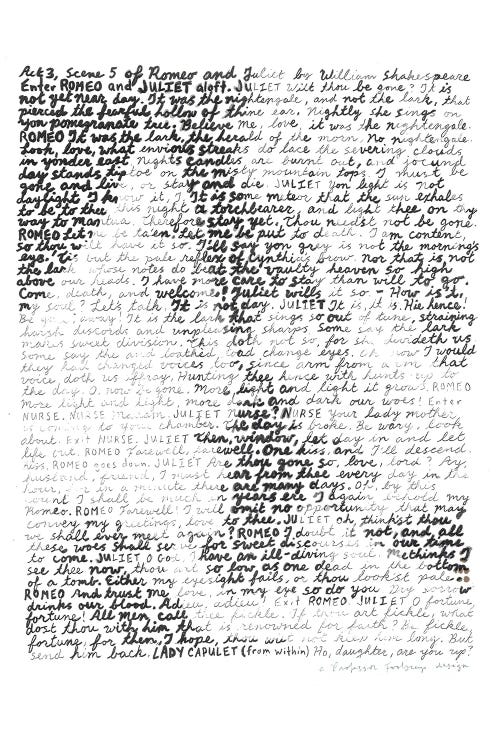 Act 3, Scene 5 of Romeo and Juliet by William Shakespeare
Enter ROMEO and JULIET aloft. JULIET Wilt thou be gone? It is
not yet near day. It was the nightengale, and not the lark, that
pierced the fearful hollow of thine ear. Nightly she sings on
yon pomegranate tree. Believe me, love, it was the nightengale.
ROMEO It was the lark, the herald of the morn, No nightengale.
Look, love, what envious streaks do lace the severing clouds
in yonder east. Nights candles are burnt out, and jocund
day stands tiptoe on the misty mountain tops. I must be
gone and live, or stay and die. JULIET Yon light is not
daylight I know it, I. It is some meteor that the sun exhales
to be to thee this night a torchbearer, and light thee on thy
way to Mantua. Therefore stay yet. Thou needst not be gone.
ROMEO Let me be taken, let me be put to death. I am content,
so thou wilt have it so. I'll say yon grey is not the mornings
eye. Tis but the pale reflex of Cynthias brow. Nor that is not
the lark whose notes do beat the vaulty heaven so high
above our heads. I have more care to stay than will to go.
Come, death, and welcome! Juliet wills it so. How is't,
my soul? Lets talk. It is not day. JULIET It is, it is. Hie hence!
Be gone, away! It is the lark that sings so out of tune, straining
harsh discords and unpleasing sharps. Some say the lark
makes sweet division. This doth not so, for she divideth us
Some say the and loathed toad change eyes. Oh now I would
they had changed voices too, since arm from arm that
voice doth us affray, Hunting thee hence with hunts up to
the day. O now be gone. More light and light it grows. ROMEO
More light and light, more dark and dark our woes! Enter
NURSE. NURSE Madam. JULIET Nurse? NURSE Your lady mother
is coming to your chamber. The day is broke. Be wary, look
about. Exit NURSE. JULIET Then, window, let day in and let
life out. ROMEO Farewell, farewell. One kiss, and I'll descend.
Kiss. ROMEO goes down. JULIET Are thou gone so, love, lord? Ay,
husband, friend, I must hear from thee every day in the
hour, for in a minute there are many days. O, by this
count I shall be much in years ere I again behold my
Romeo. ROMEO Farewell! I will omit no opportunity that may
convey my greetings, love to thee. JULIET Oh, thinkst thou
we shall ever meet again? ROMEO I doubt it not, and all
these woes shall serve for sweet discourses in our time
to come. JULIET O God, I have an ill-diving soul. Methinks I
see thee now, thou art so low, as one dead in the bottom
of a tomb. Either my eyesight fails, or thou lookst pale.
ROMEO And trust me love, in my eye so do you. Dry sorrow
drinks our blood. Adieu, adieu! Exit ROMEO. JULIET O fortune,
fortune! All men call thee fickle. If thou art fickle, what
dost thou with him that is renowned for faith? Be fickle,
fortune, for then, I hope, thou wilt not keep him long. But
send him back. LADY CAPULET (from within) Ho, daughter, are you up?
a Professor design